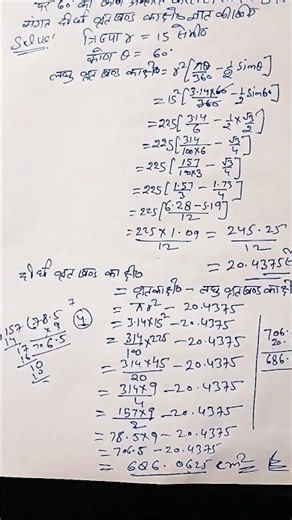 पर 60° का कोण
संगत दीर्घ वृत्तखण्ड का क्षे० ज्ञात कीजिये
Solve:
त्रिज्या r = 15 सेमी०
कोण θ = 60°
लघु वृत्तखण्ड का क्षे० = r²[πθ/360 - 1/2 sinθ]
= 15²[3.14×60/360 - 1/2 sin60]
= 225[3.14/6 - 1/2 × √3/2]
= 225[314/100×6 - √3/4]
= 225[157/100×3 - √3/4]
= 225[1.57/3 - 1.73/4]
= 225[6.28 - 5.19/12]
= 225 × 1.09/12 = 245.25/12
= 20.4375
दीर्घ वृत्तखण्ड का क्षे०
= वृत्त का क्षे० - लघु वृत्तखण्ड का क्षे०
= πr² - 20.4375
= 3.14×15² - 20.4375
= 314×225 - 20.4375
= 314×45/20 - 20.4375
= 314×9/4 - 20.4375
= 157×9/2 - 20.4375
= 78.5×9 - 20.4375
= 706.5 - 20.4375
= 686.0625 cm²
157(78.5
14 ×9
17 706.5
16
10
10
706.
20.
686.